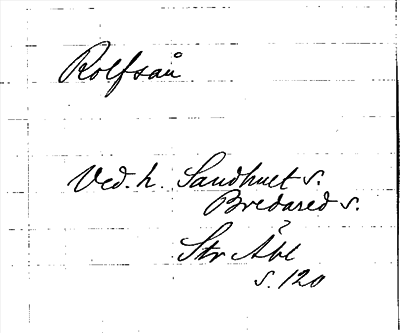 Rolfsån
Ved. h. Sandhult s.
Bredared s.
Str Åbl
s. 120